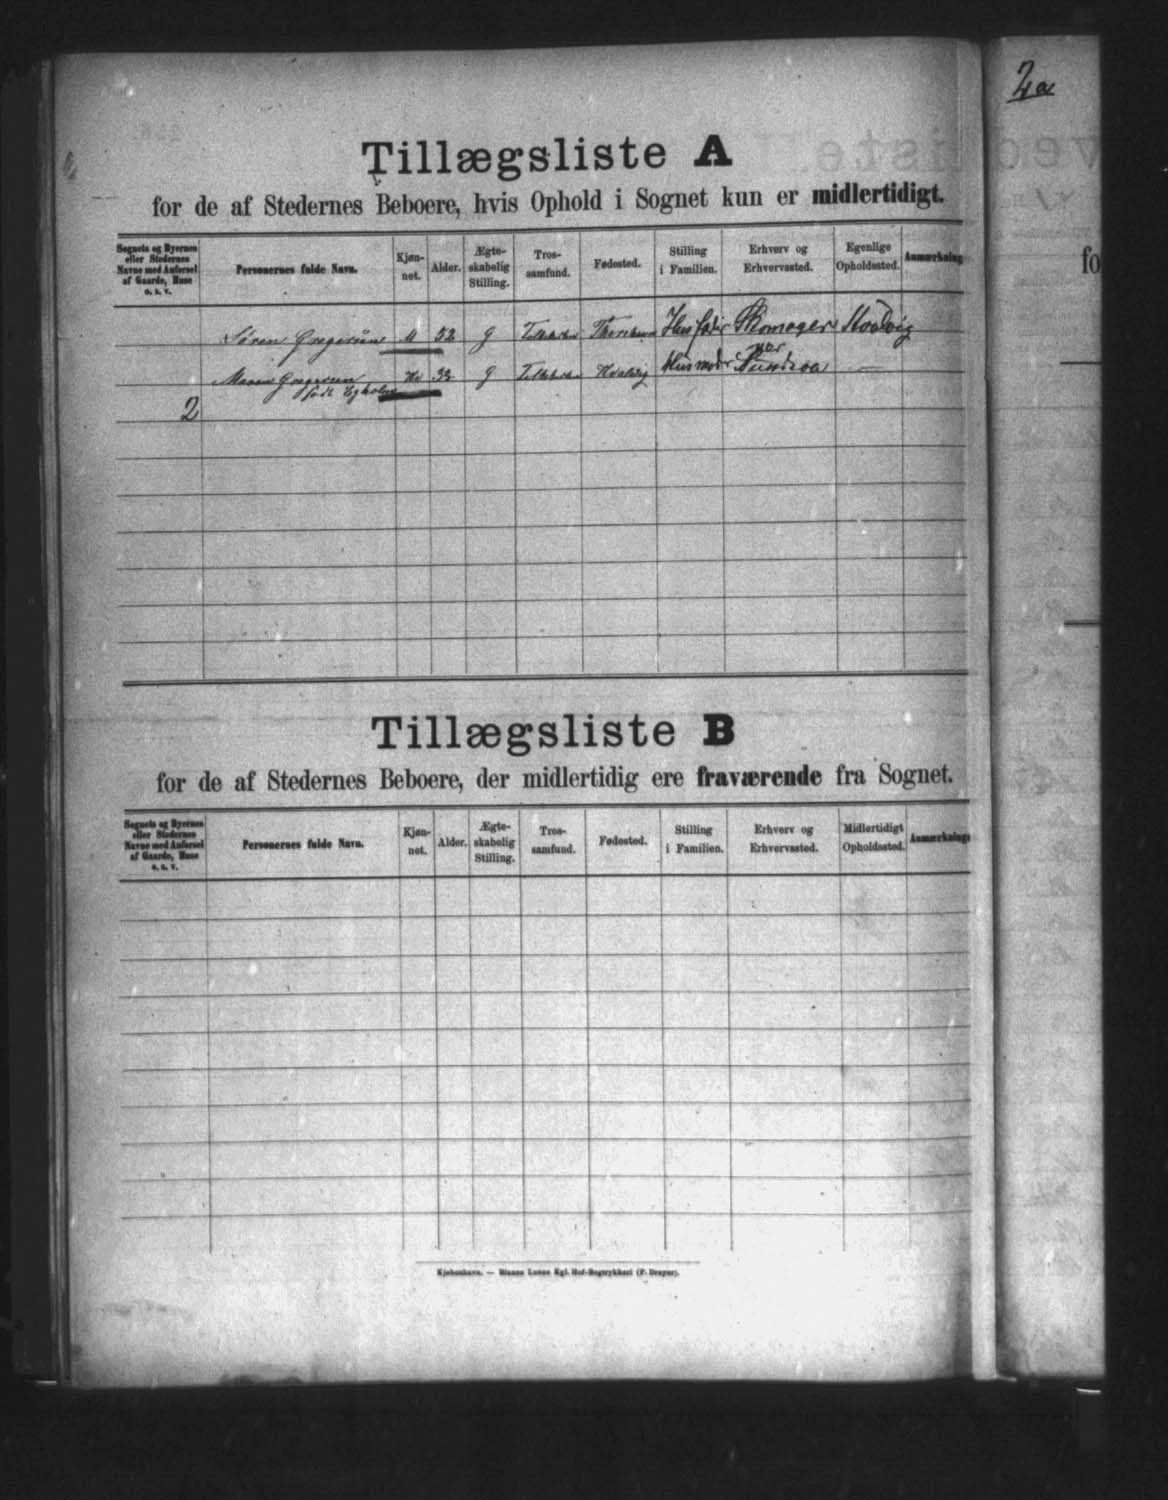 2a
Tillægsliste A
for de af Stedernes Beboere, hvis Ophold i Sognet kun er midlertidigt.
Sognets og Byernes
eller Stedernes
Navne med Anførsel
af Gaarde, Huse
o. s. v.
Personernes fulde Navn.
Kjøn-
net.
Alder.
Ægte-
skabelig
Stilling.
Tros-
samfund.
Fødested.
Stilling
i Familien.
Erhverv og
Erhvervssted.
Egenlige
Opholdssted.
Søren Gregersen M 52 g Husfader Skomager
Maren Gregersen Kv g Husmoder
født
2
fo
Tillægsliste B
for de af Stedernes Beboere, der midlertidig ere fraværende fra Sognet.
Sognets og Byernes
eller Stedernes
Navne med Anførsel
af Gaarde, Huse
o. s. v.
Personernes fulde Navn.
Kjøn-
net.
Alder.
Ægte-
skabelig
Stilling.
Tros-
samfund.
Fødested.
Stilling
i Familien.
Erhverv og
Erhvervssted.
Midlertidigt
Opholdssted.
Kjøbenhavn. — Bianco Lunos Kgl. Hof-Bogtrykkeri (F. Dreyer).